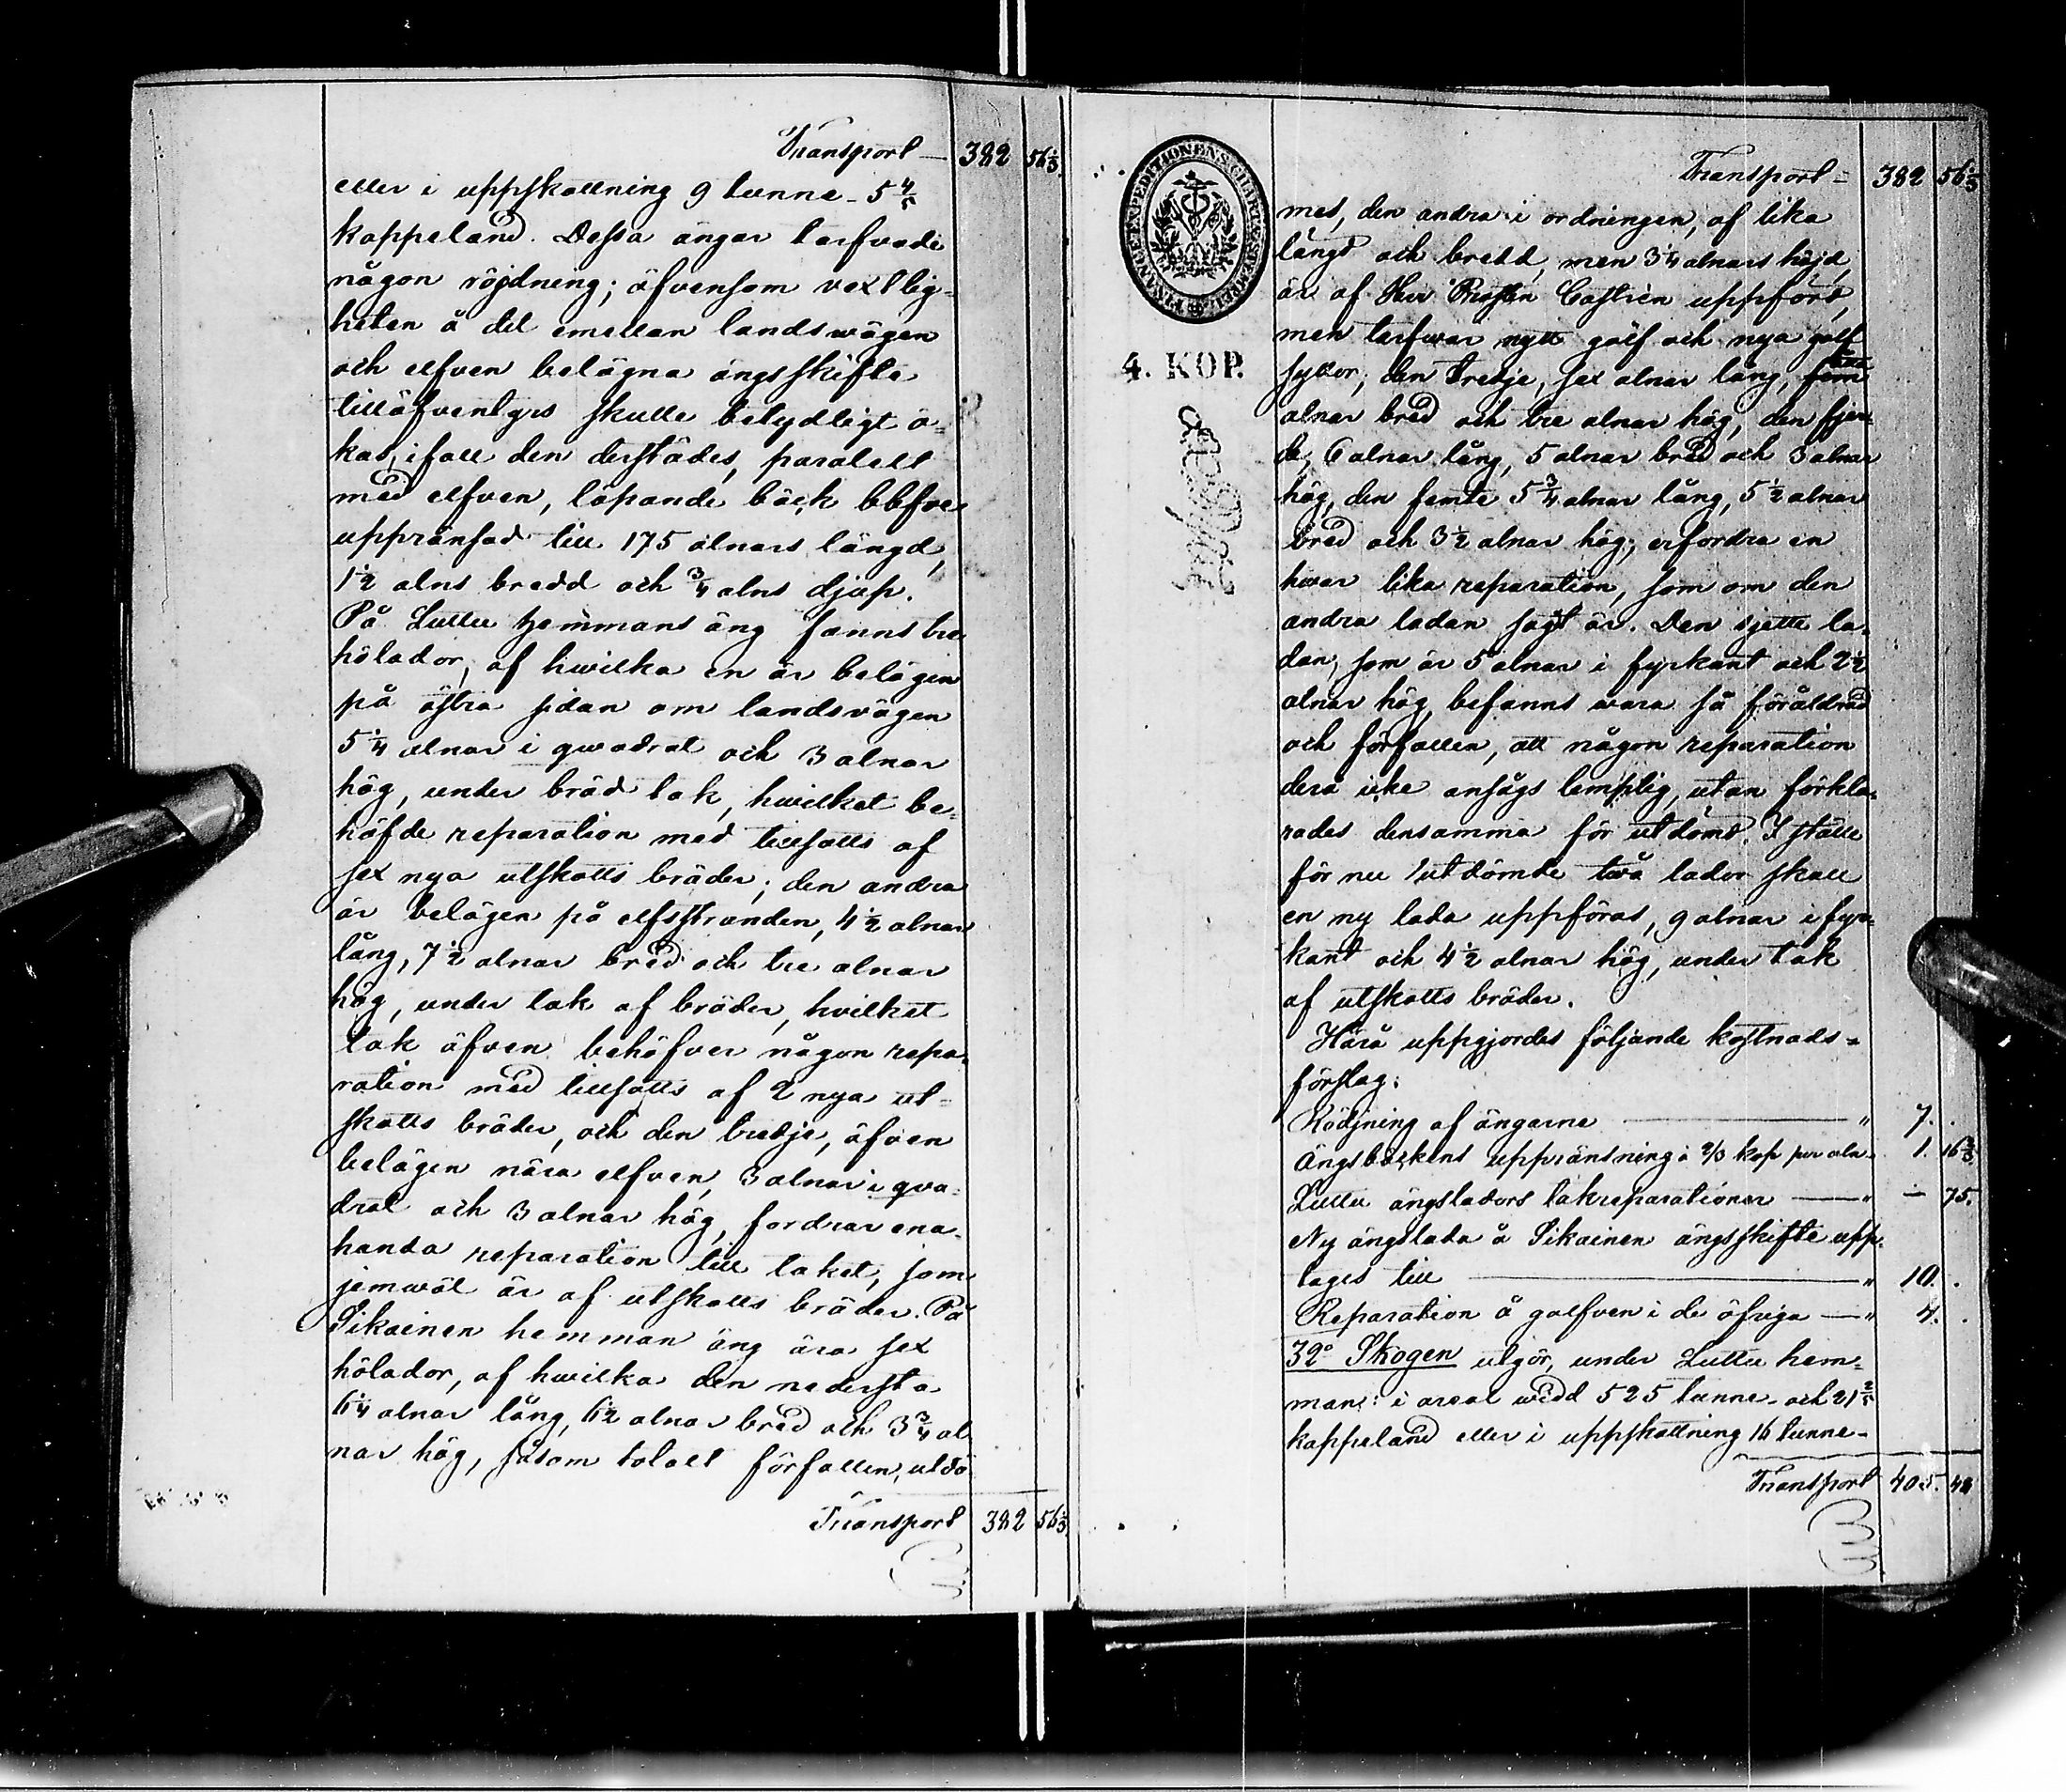 Transport — 382 56 1/3.
eller i uppskattning 9 tunne- 5 4/5
kappeland. Dessa ängar tarfvade
någon röjdning; äfvensom vextlig-
heten å det emellan landswägen
och elfven belägna ängsskifte
tilläfventyrs skulle betydligt ö-
kas, ifall den derstädes, paralelt
med elfven, löpande bäck blefve
uppränsad till 175 alnars längd,
1 1/2 alns bredd och 3/4 alns djup.
På Luttu hemmans äng fanns tre
hölador, af hwilka en är belägen
på östra sidan om landsvägen
5 1/4 alnar i qwadrat och 3 alnar
hög, under bräd tak, hwilket be-
höfde reparation med tillsatts af
sex nya utskotts bräder; den andra
är belägen på elfsstranden, 4 1/2 alnar
lång, 7 1/2 alnar bred och tre alnar
hög, under tak af bräder, hvilket
tak äfven behöfver någon repa-
ration med tillsatts af 2 nya ut-
skotts bräder, och den tredje, äfven
belägen nära elfven, 3 alnar i qva-
drat och 3 alnar hög, fordrar ena-
handa reparation till taket, som
jemwäl är af utskotts bräder. På
Sikainen hemman äng ära sex
hölador, af hwilka den nedersta
6 1/4 alnar lång, 6 1/2 alnar bred och 3 3/4 al
nar hög, såsom totalt förfallen, utdö
Transport 382 56 1/3.
FINANCE EXPEDITIONENS CHARTÆ STEMPEL
4. KOP.
Transport - 382 56 1/3
mes, den andra i ordningen, af lika
längd och bredd, men 3 1/4 alnars höjd,
är af Herr Prosten Castrén uppförd,
men tarfwar nytt golf och nya golf
syllor; den tredje, sex alnar lång, fem
alnar bred och tre alnar hög, den fjer-
de, 6 alnar lång, 5 alnar bred och 3 alnar
hög, den femte 5 3/4 alnar lång, 5 1/2 alnar
bred och 3 1/2 alnar hög; erfordra en
hwar lika reparation, som om den
andra ladan sagt är. Den sjette la-
dan, som är 5 alnar i fyrkant och 2 1/2
alnar hög, befanns wara så föråldrad
och förfallen, att någon reparation
derå icke ansågs lemplig, utan förkla-
rades densamma för utdömd. I ställe
för nu utdömde twå lador skall
en ny lada uppföras, 9 alnar i fyr-
kant och 4 1/2 alnar hög, under tak
af utskotts bräder.
Härå uppgjordes följande kostnads-
förslag:
Rödjning af ängarne — " 7. .
Ängsbäckens uppränsning à 2/3 kop per aln - 1. 16 2/3
Luttu ängsladors takreparationer — " — 75.
Ny ängslada å Sikainen ängsskifte upp-
tages till — " 10. .
Reparation å golfven i de öfriga — " 4. .
32° Skogen utgör, under Luttu hem-
man: i areal widd 525 tunne- och 21 2/5
kappeland eller i uppskattning 16 tunne-
Transport 405. 48